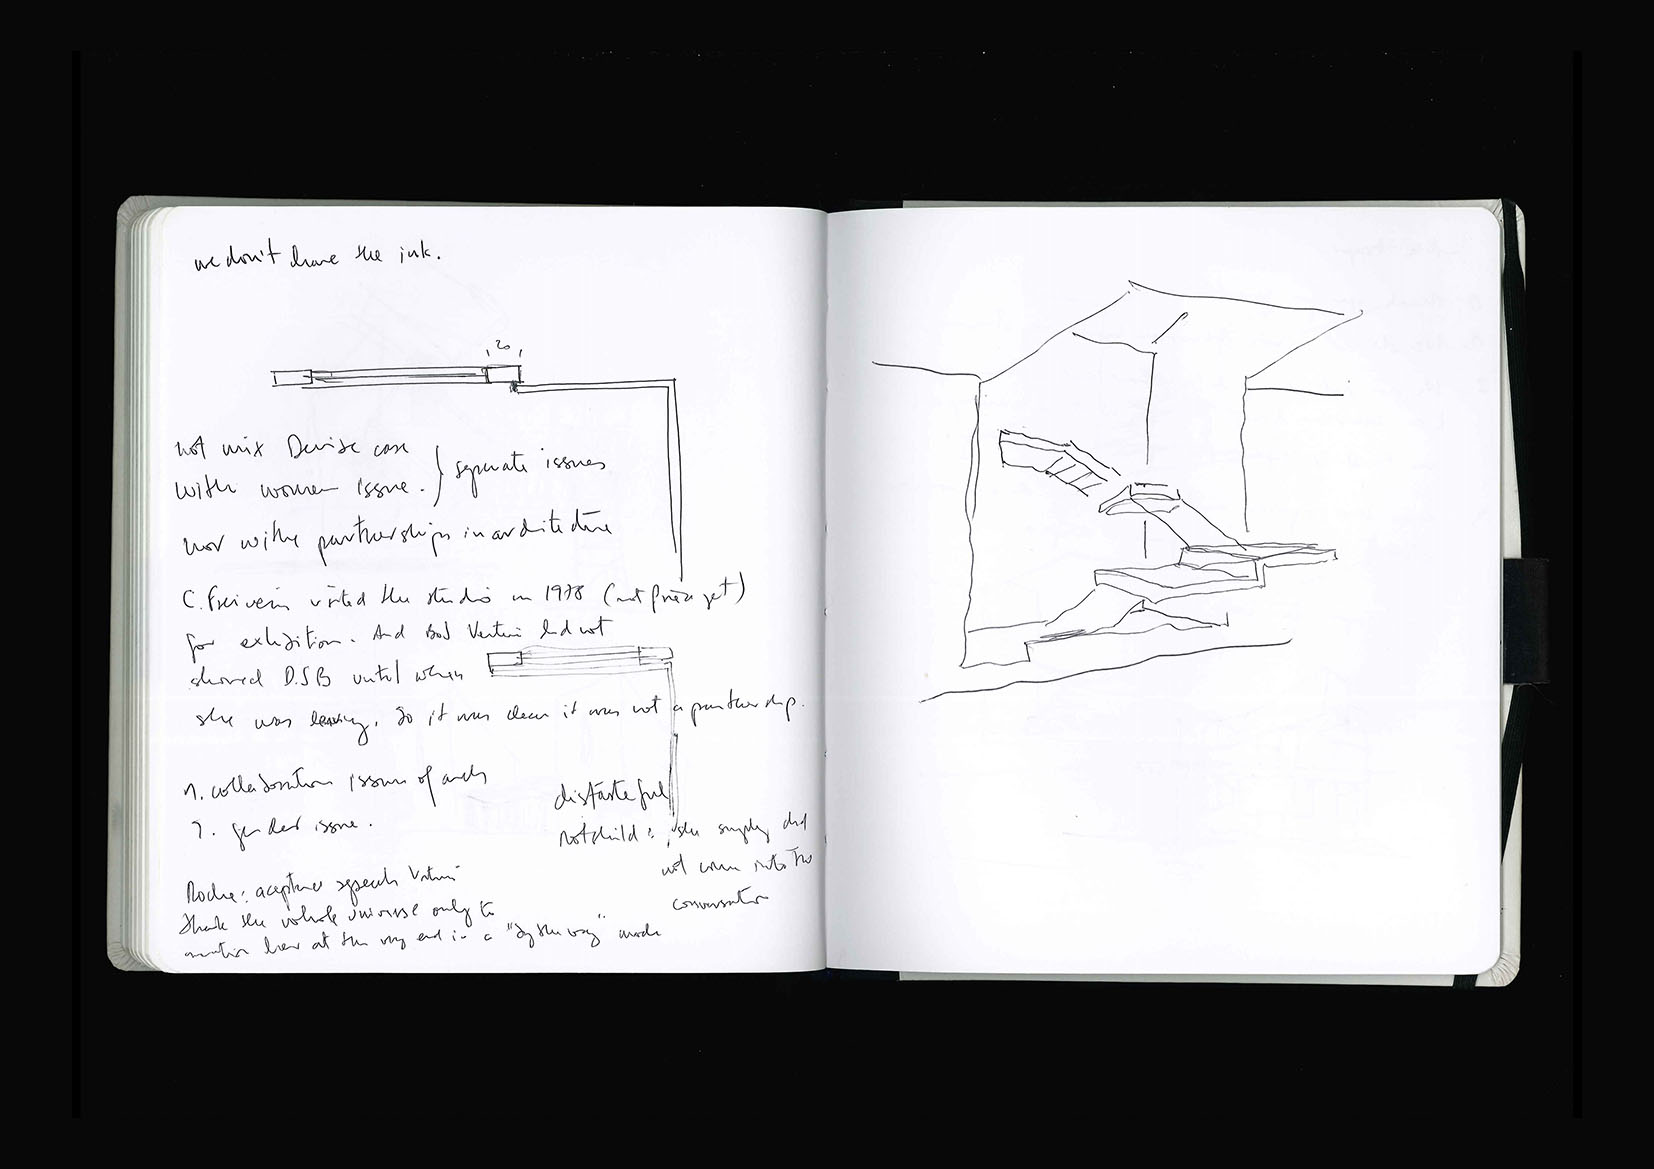 we don't have the ink.
20
not mix Denise case
with women issue. } separate issues
nor withe partnerships in architecture
C. visited the studio in 1978 (not prize yet)
for exhibition. And Bob Venturi did not
showed D.S.B until when
she was leaving. So it was clear it was not a partnership.
1. collaboration issue of arch
2. gender issue.
distasteful
Rotchild: she simply did
not come into the
conversation
Roche: aceptance speech Venturi
thank the whole universe only to
mention her at the very end in a "by the way" mode